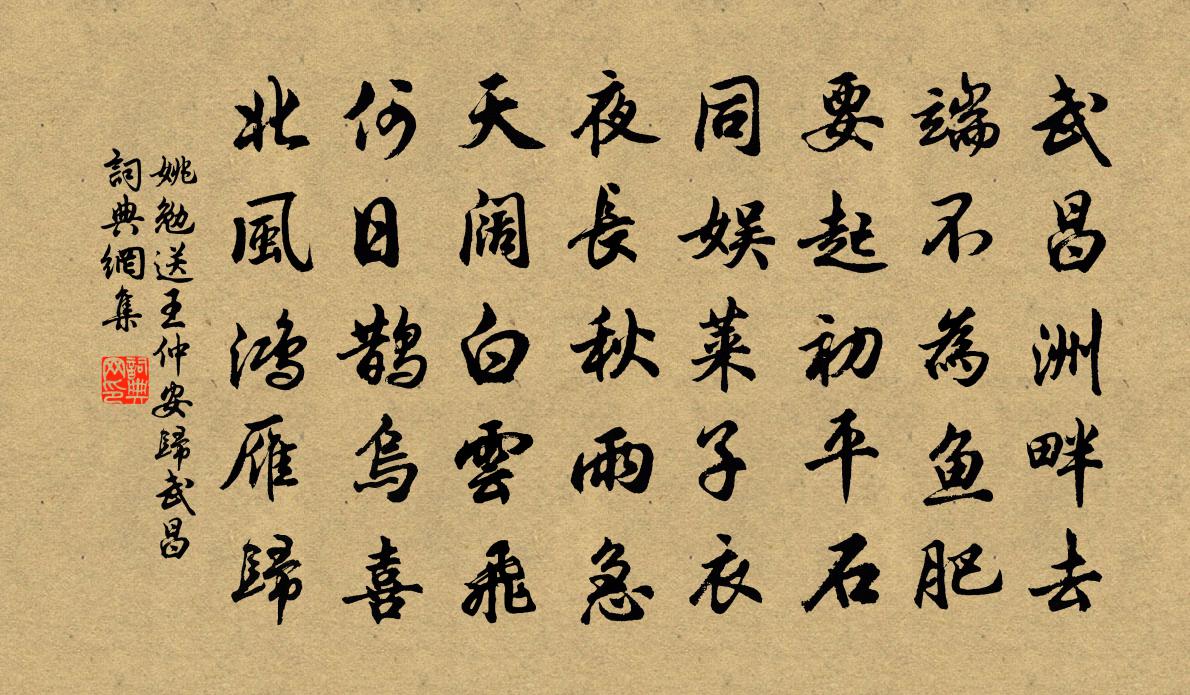 武昌洲畔去
端不為鱼肥
要起初平石
同娱莱子衣
夜長秋雨急
天阔白雲飛
何日鹊烏喜
北風鸿雁歸
姚勉送王仲安歸武昌
詞典網集
詞典
网印